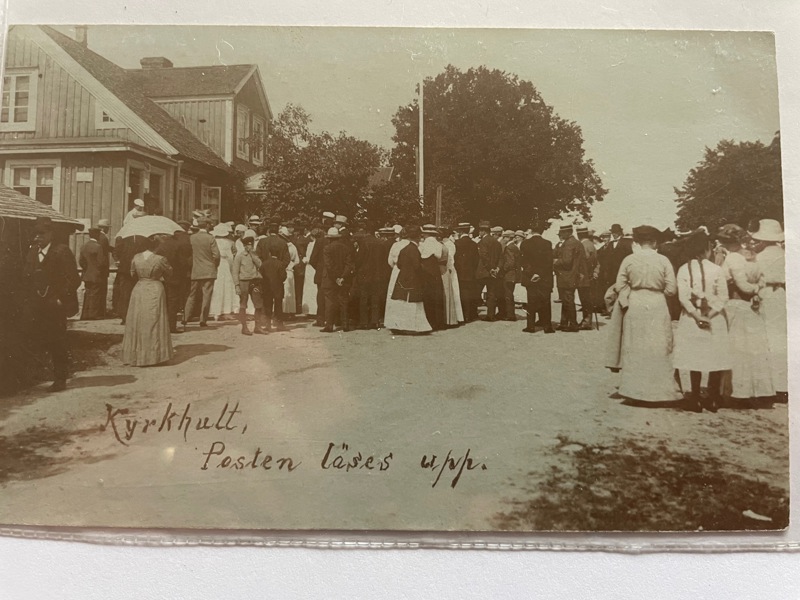 Kyrkhult,
Posten läses upp.